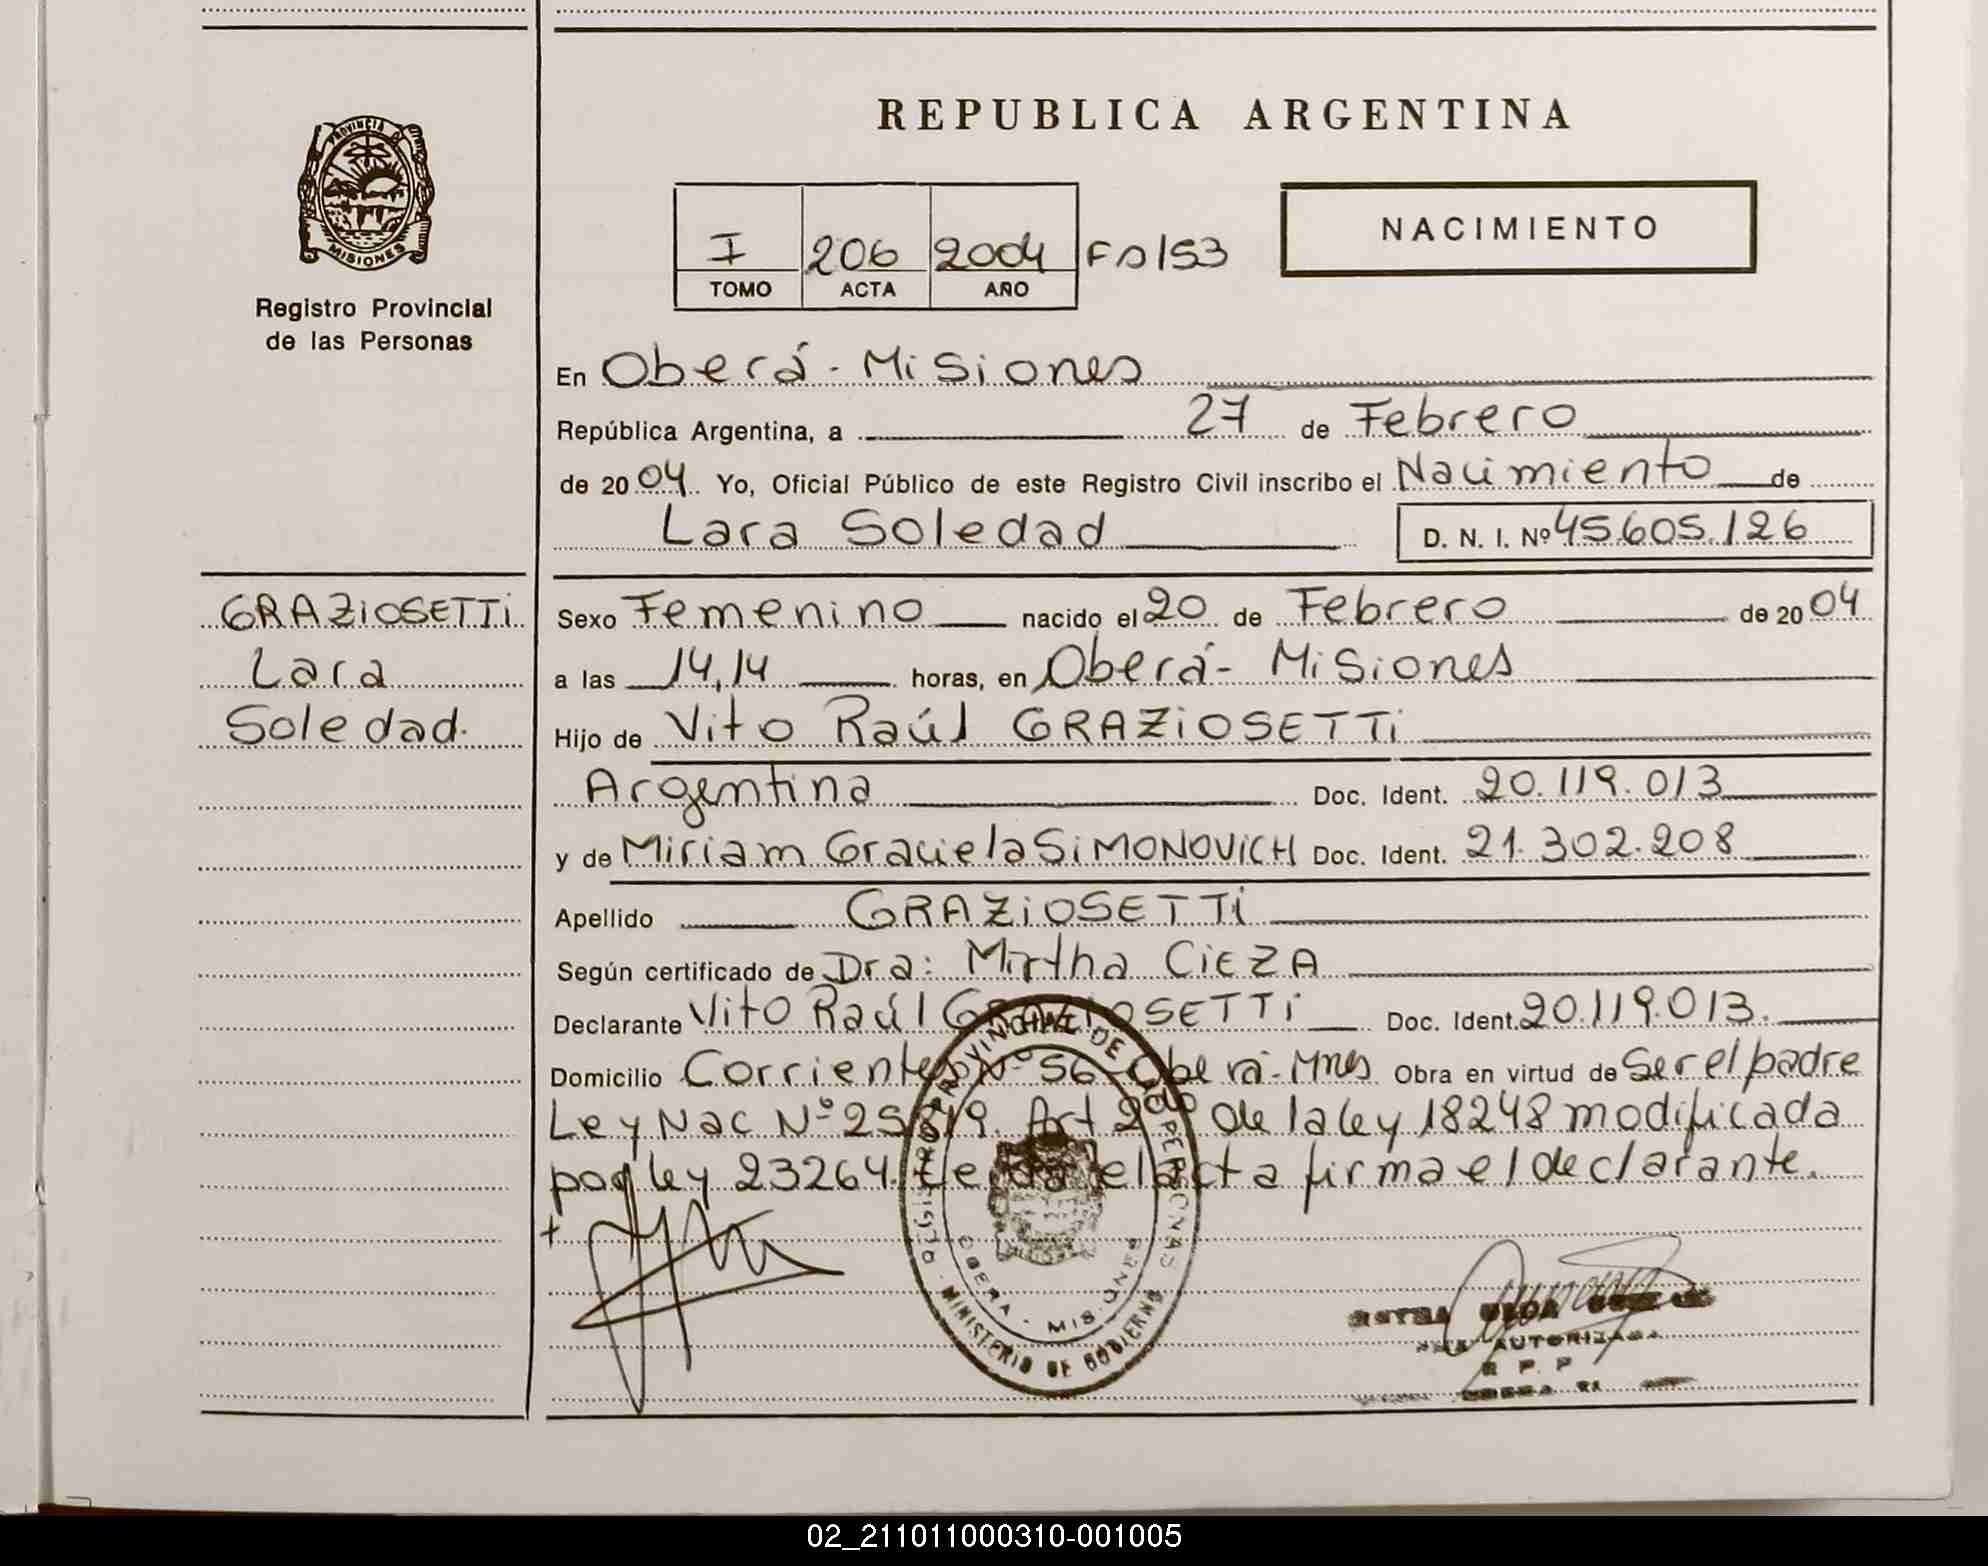 REPUBLICA ARGENTINA
PROVINCIA DE
MISIONES
Registro Provincial
de las Personas
NACIMIENTO
I 206 2004 Fº 153
TOMO ACTA AÑO
En Oberá - Misiones
República Argentina, a 27 de Febrero
de 2004 Yo, Oficial Público de este Registro Civil inscribo el Nacimiento de
Lara Soledad D. N. I. Nº 45.605.126
GRAZIOSETTI
Lara
Soledad.
Sexo Femenino nacido el 20 de Febrero de 2004
a las 14,14 horas, en Oberá - Misiones
Hijo de Vito Raúl GRAZIOSETTI
Argentina Doc. Ident. 20.119.013
y de Miriam Graciela SIMONOVICH Doc. Ident. 21.302.208
Apellido GRAZIOSETTI
Según certificado de Dra: Mirtha CIEZA
Declarante Vito Raúl GRAZIOSETTI Doc. Ident. 20.119.013.
Domicilio Corrientes Nº 56 - Oberá - Mnes Obra en virtud de Ser el padre
Ley Nac Nº 25819. Art 2do de la ley 18248 modificada
por ley 23264. Leída el acta firma el declarante.
REGISTRO PROVINCIAL DE LAS PERSONAS
OBERA - MISIONES
MINISTERIO DE GOBIERNO
AUTORIZADA
R P P
02_211011000310-001005